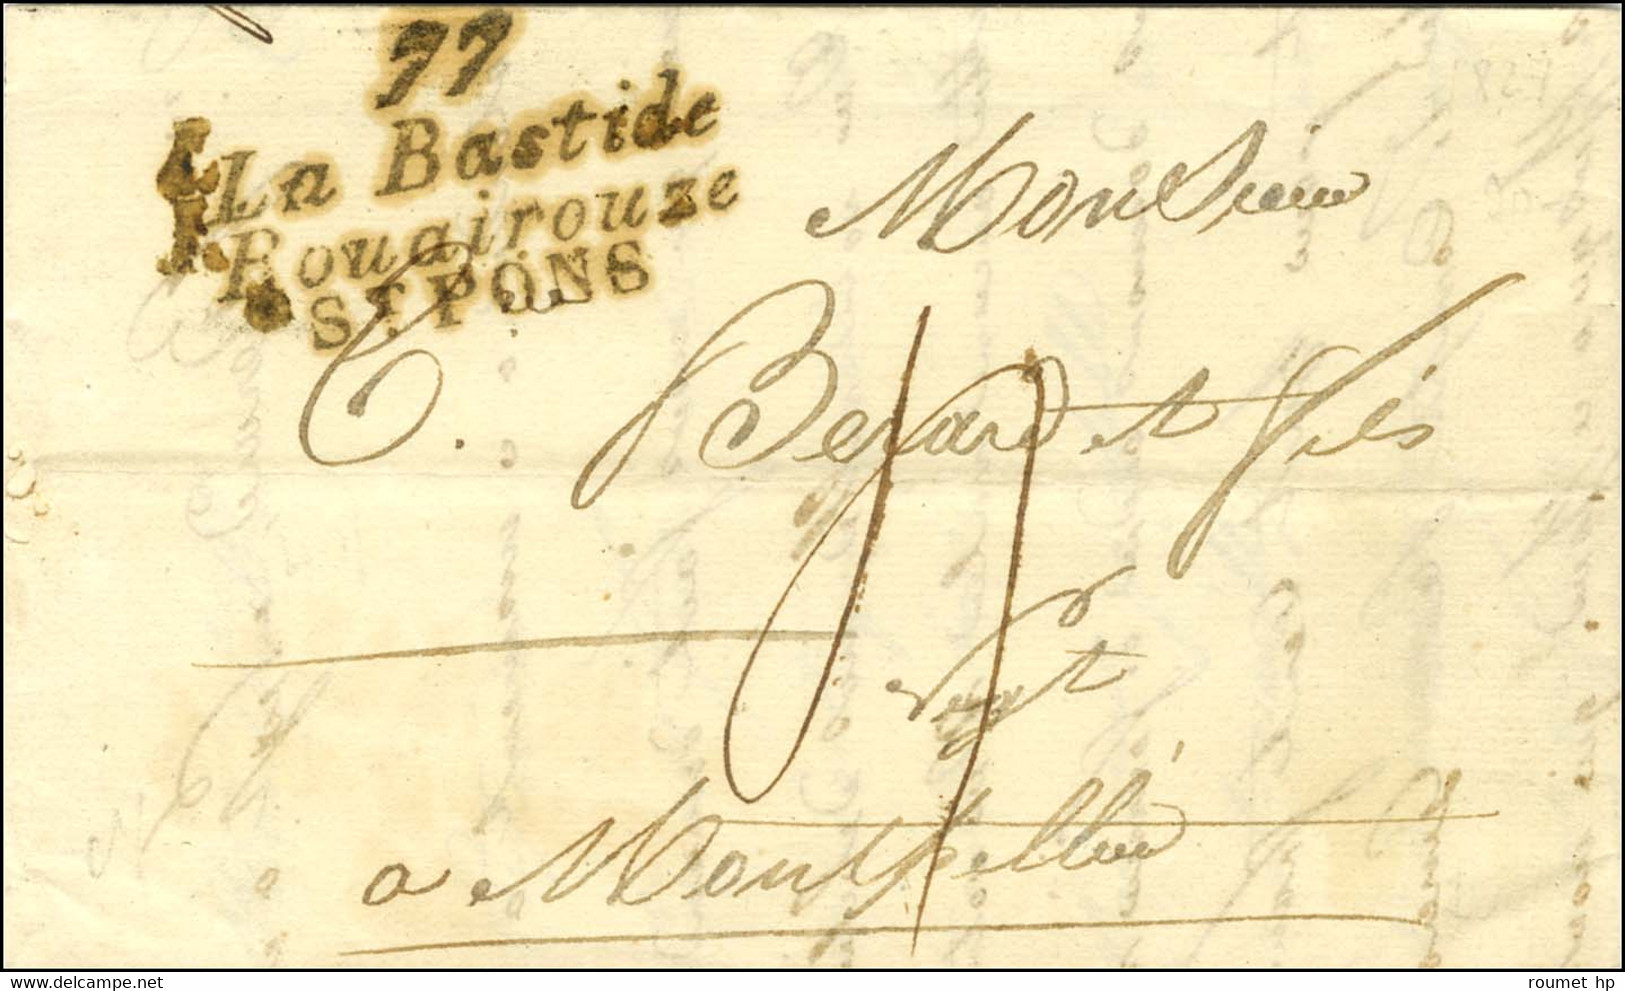 77
La Bastide
Rouairouze
ST PONS
Monsieur
C. Bezard et fils
Negt
a Montpellier
1827
roumet hp